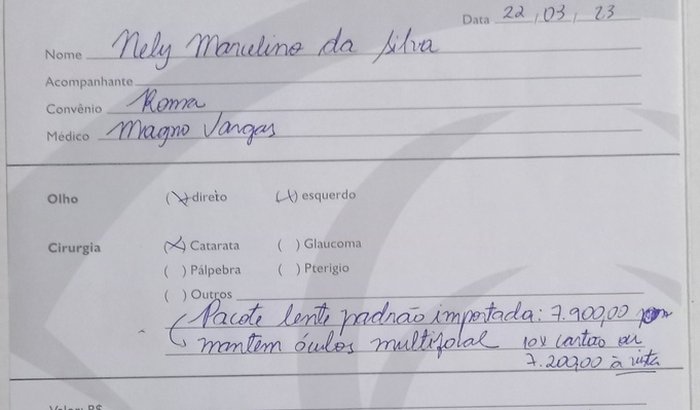 Data 22, 03, 23
Nome Nely Marcelino da Silva
Acompanhante
Convênio Roma
Médico Magno Vargas
Olho (X) direto (X) esquerdo
Cirurgia (X) Catarata ( ) Glaucoma
( ) Pálpebra ( ) Pterigio
( ) Outros
Pacote lente padrão importada: 7.900,00
mantem óculos multifocal 10x cartão ou
7.200,00 à vista
Valor: R$